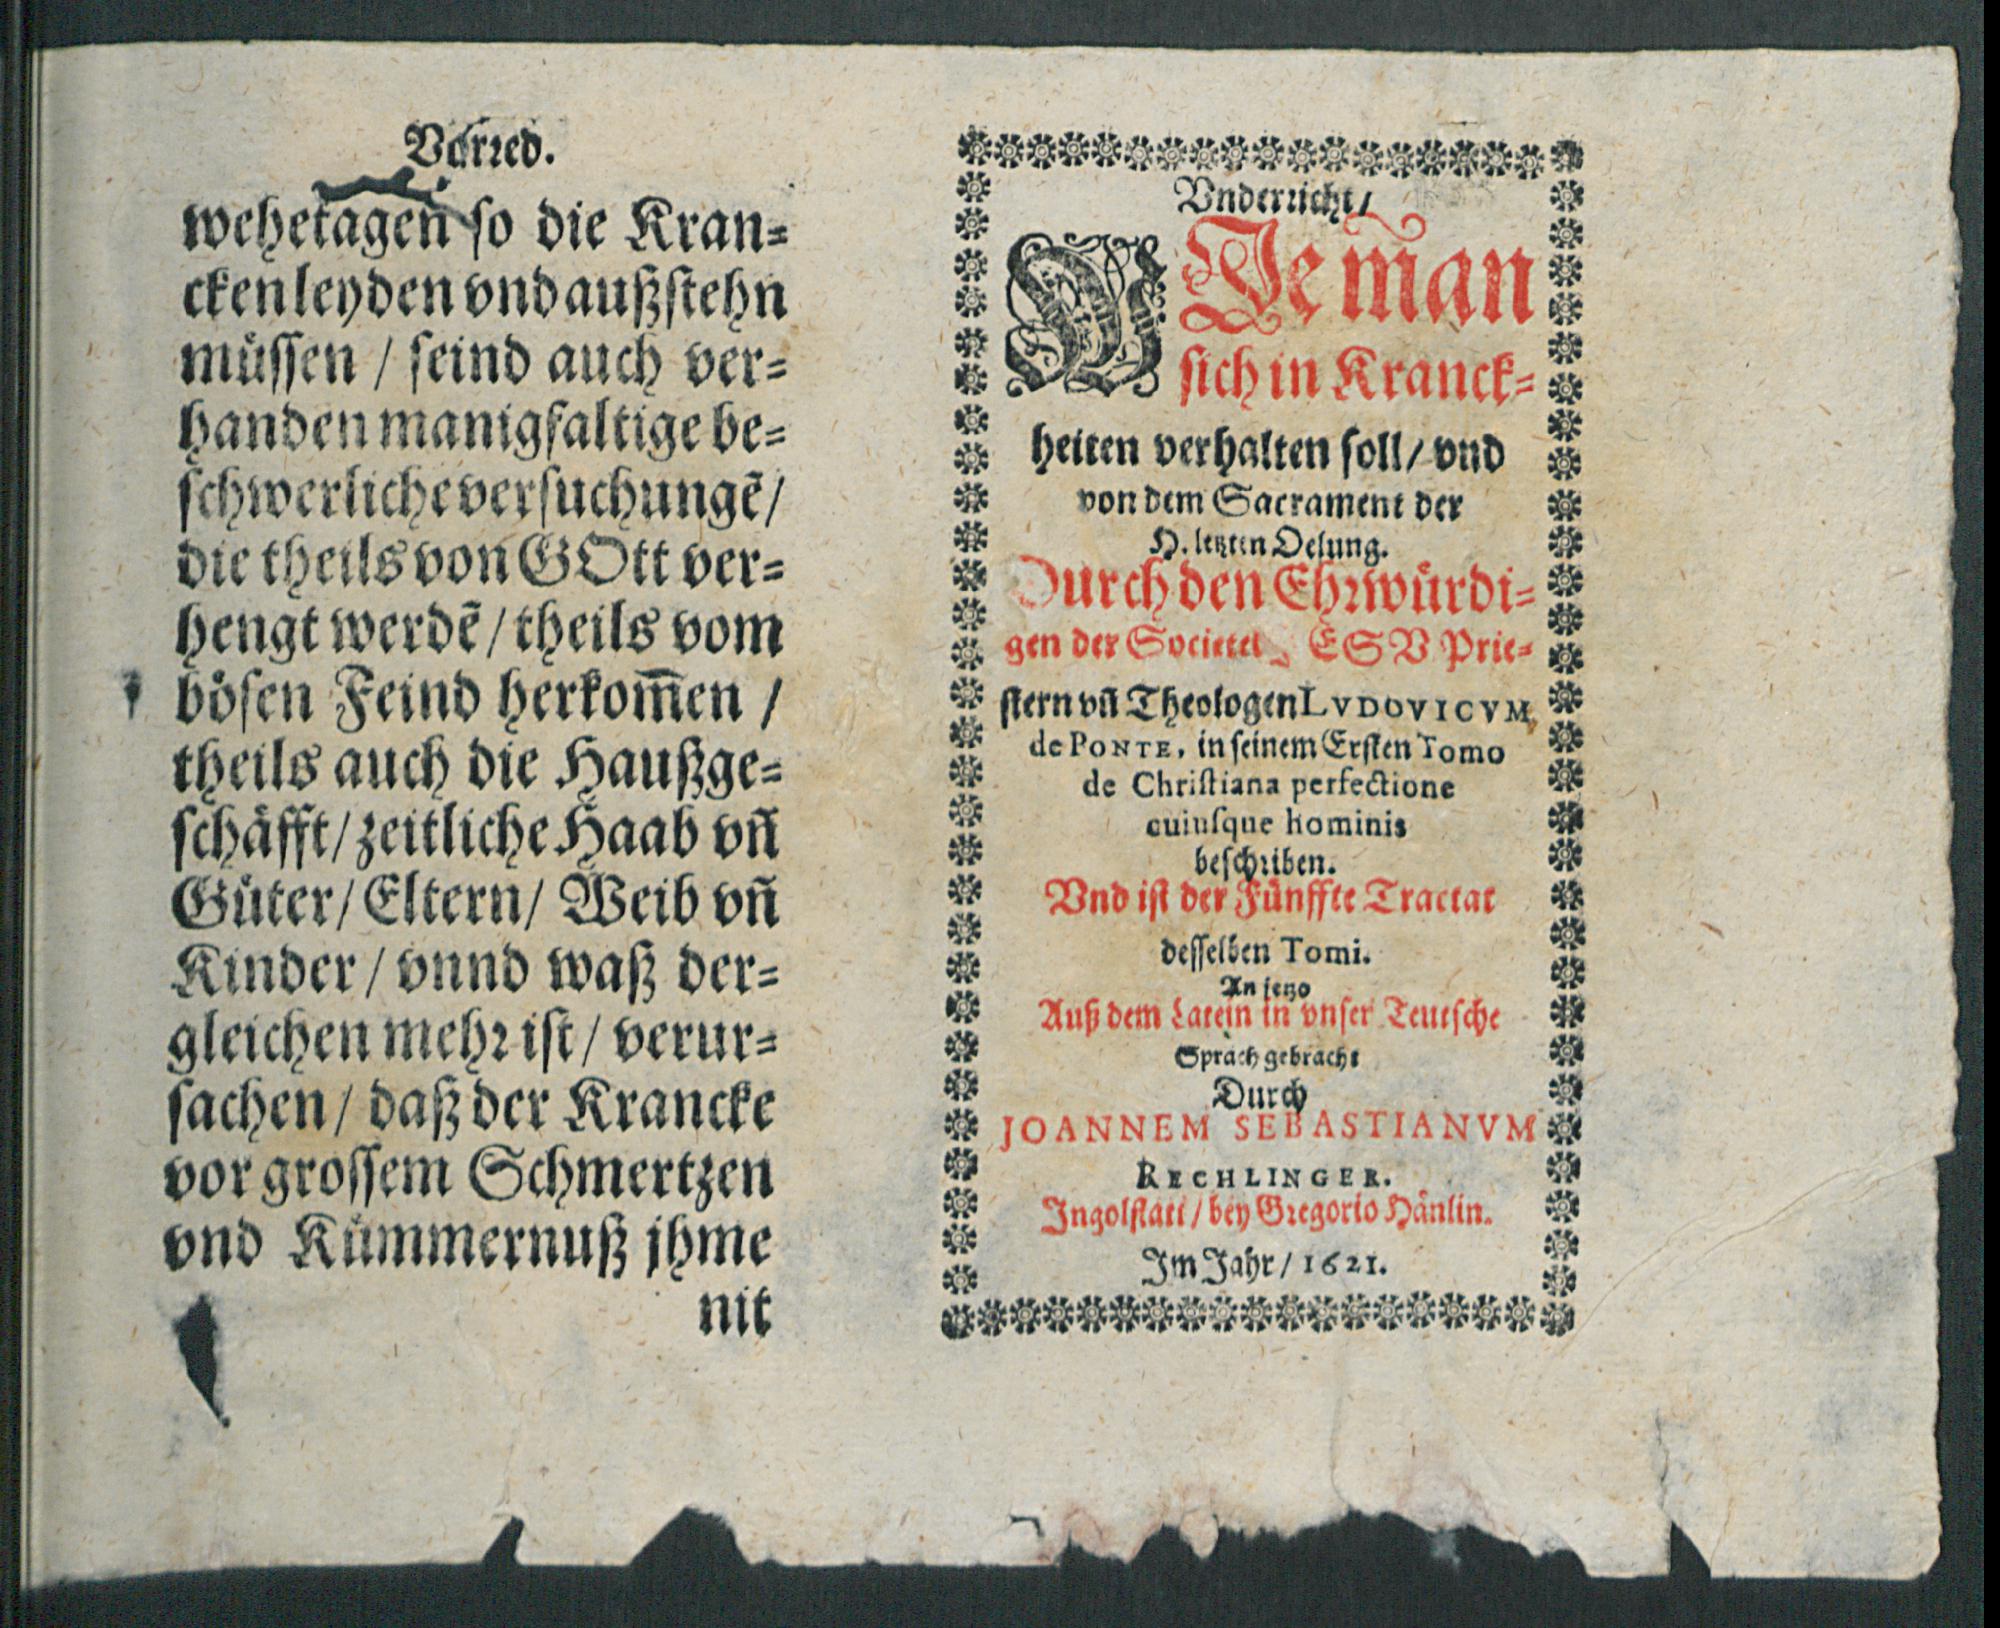 Vorred.
wehetagen so die Kran-
cken leyden vnd außstehn
müssen / seind auch ver-
handen manigfaltige be-
schwerliche versuchungẽ/
die theils von GOtt ver-
hengt werdẽ / theils vom
bösen Feind herkom̃en /
theils auch die Haußge-
schäfft/ zeitliche Haab vñ
Güter/ Eltern/ Weib vñ
Kinder / vnnd waß der-
gleichen mehr ist / verur-
sachen / daß der Krancke
vor grossem Schmertzen
vnd Kümmernuß jhme
nit
Vnderricht/
WJe man
sich in Kranck-
heiten verhalten soll/ vnd
von dem Sacrament der
H. letzten Oelung.
Durch den Ehrwürdi-
gen der Societet JESV Prie-
stern vñ Theologen LVDOVICVM
de PONTE, in seinem Ersten Tomo
de Christiana perfectione
cuiusque hominis
beschriben.
Vnd ist der Fünffte Tractat
desselben Tomi.
An jetzo
Auß dem Latein in vnser Teutsche
Sprach gebracht
Durch
JOANNEM SEBASTIANVM
RECHLINGER.
Jngolstatt / bey Gregorio Hänlin.
Jm Jahr / 1621.